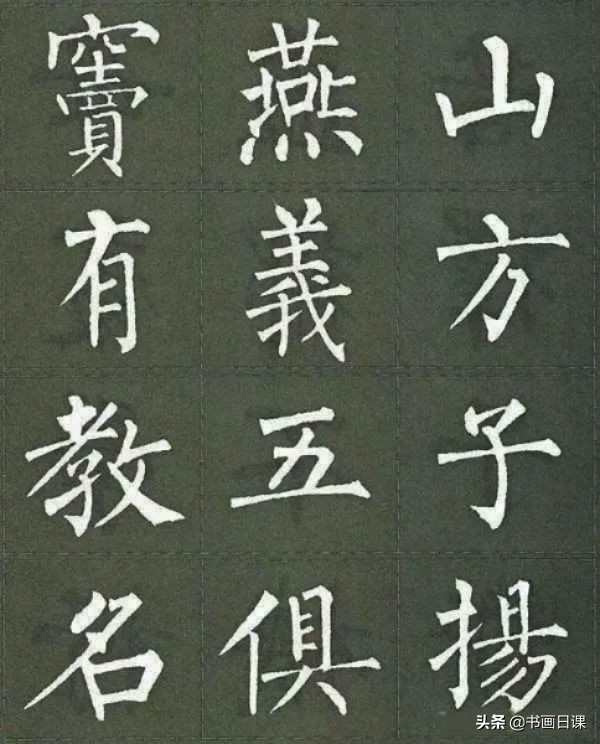 竇燕山
有義方
教五子
名俱揚
头条 @书画日课